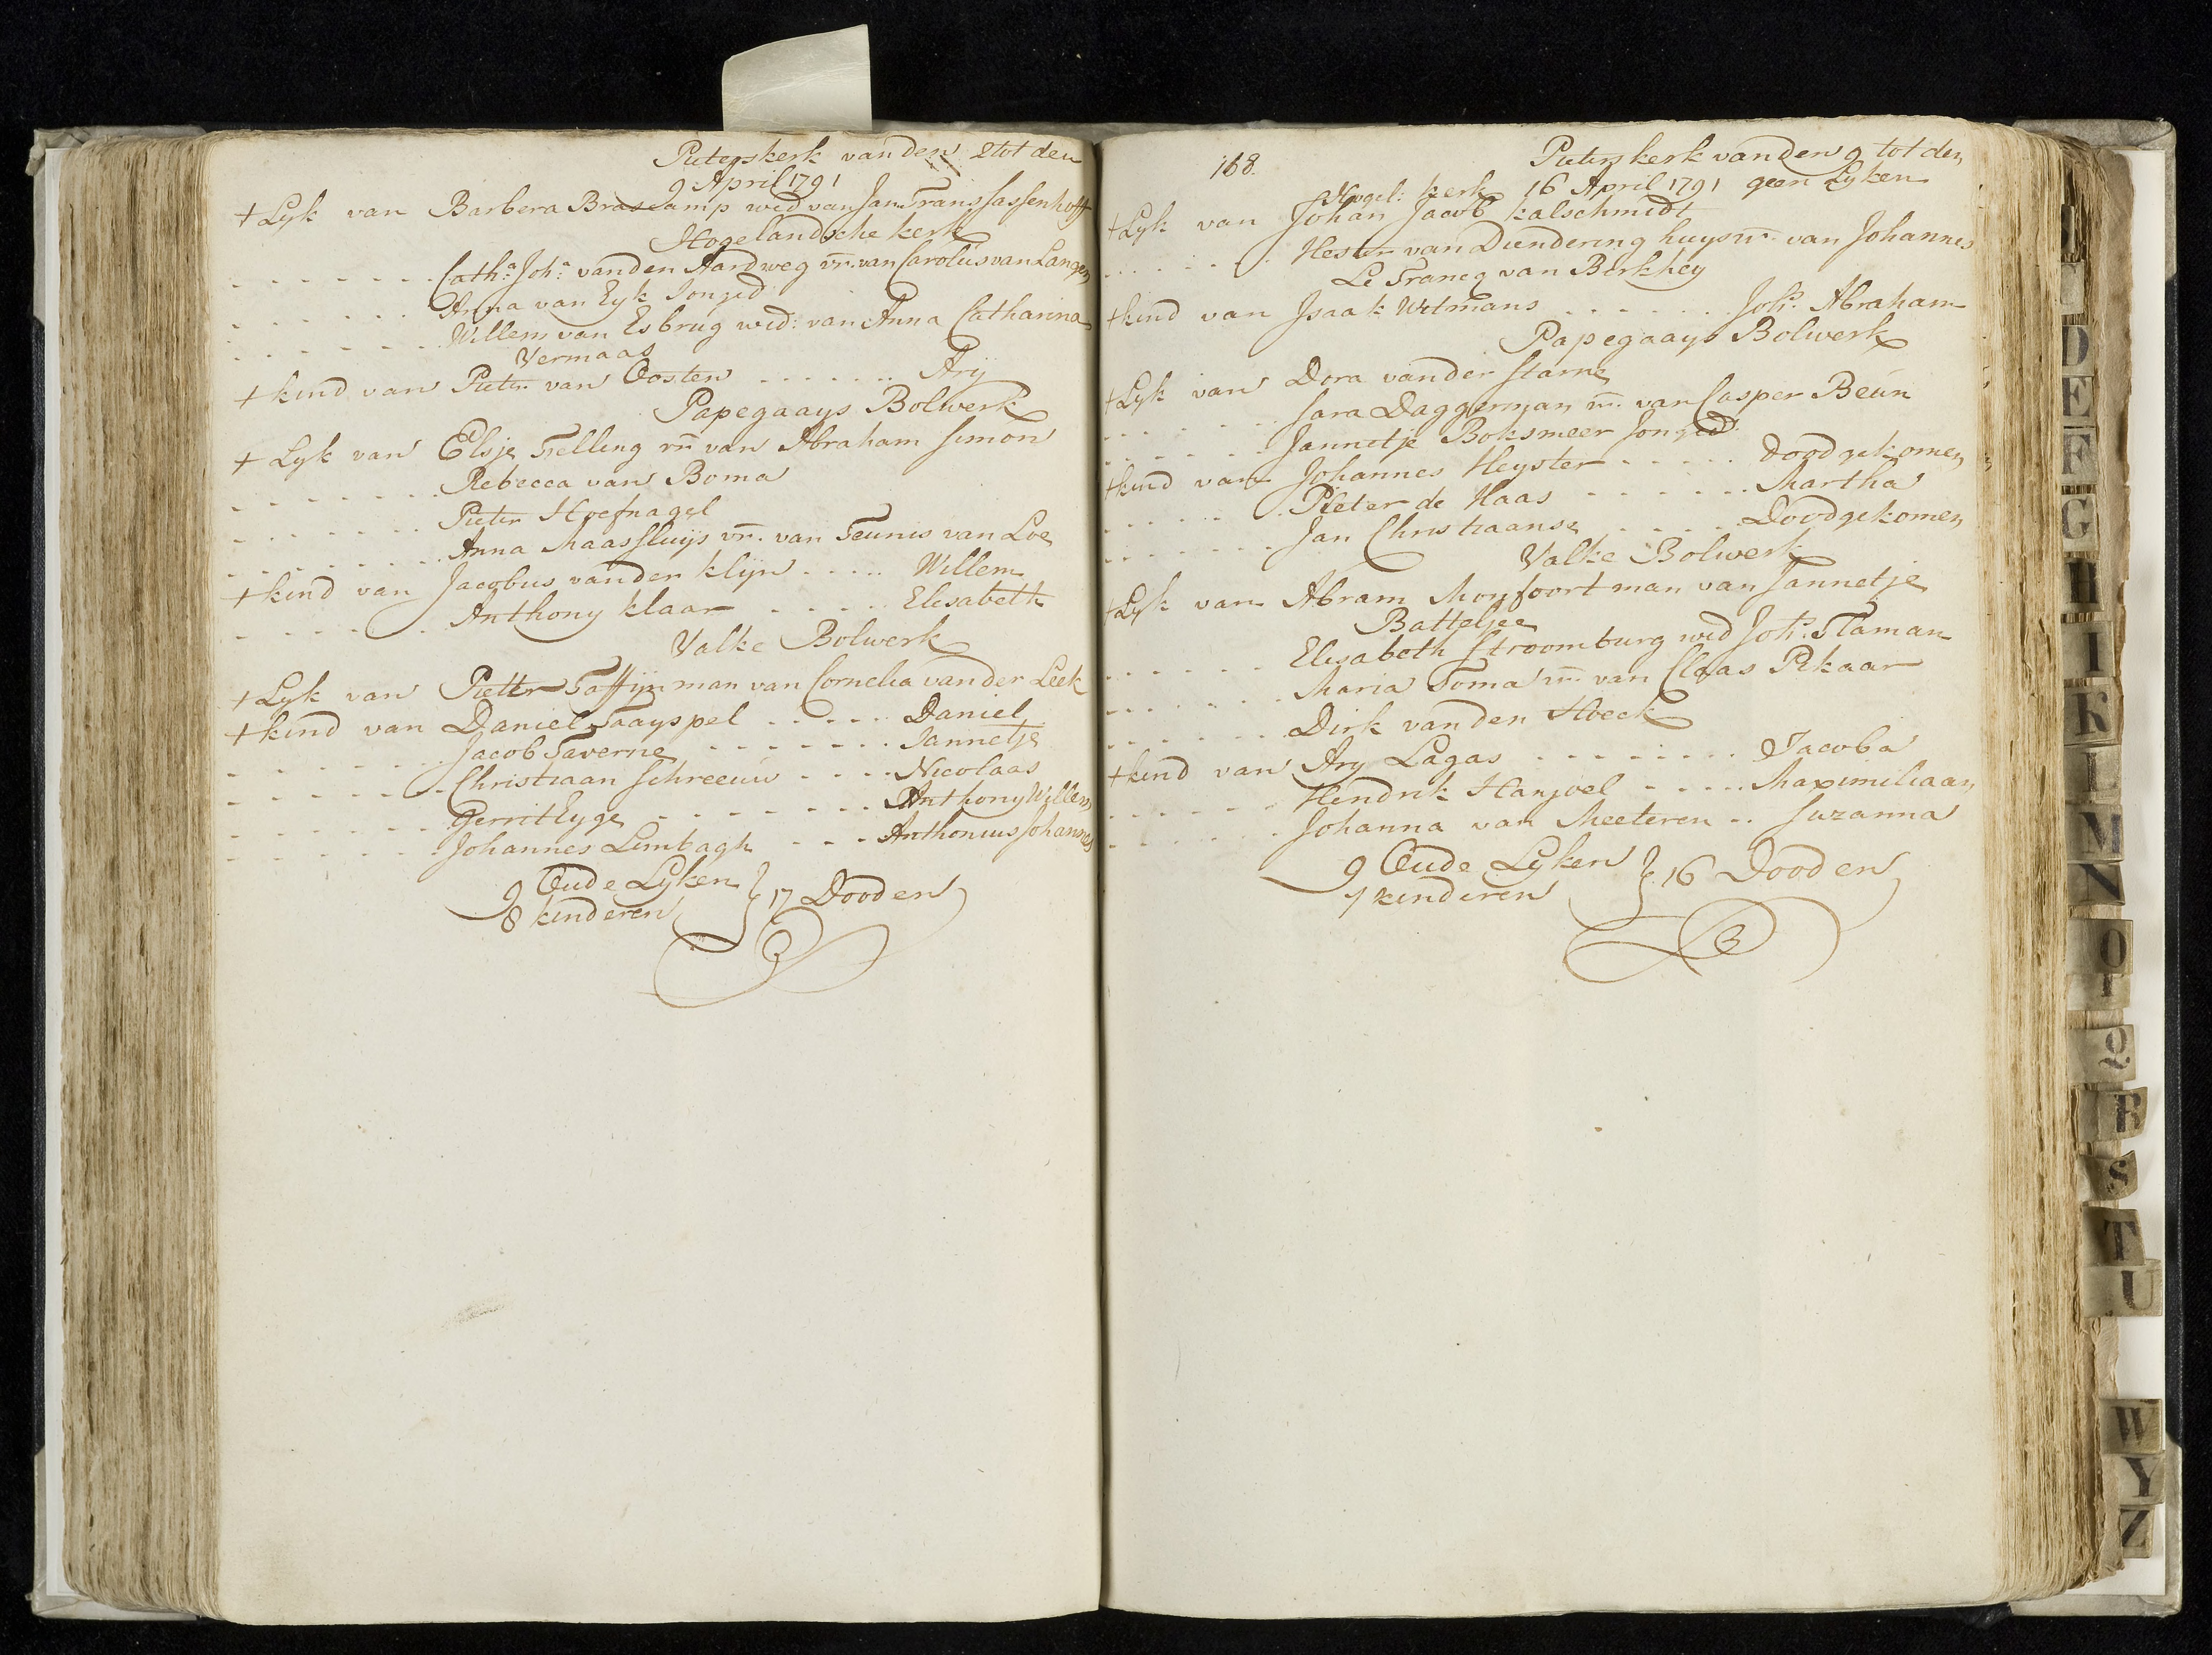 Pieterskerk van den 2 tot den
9 April 1791
† Lyk van Barbera Brascamp wed van Jan Frans Sassenhoff
Hogelandsche kerk
Cath.a Joh.a van den Aardweg vr. van Carolus van Langen
Anna van Eyk Jonged
Willem van Esbrug wed: van Anna Catharina
Vermaas
† kind van Pieter van Oosten ....... Arij
Papegaays Bolwerk
† Lyk van Elsje Felling vr van Abraham Simon
Rebecca van Boma
Pieter Hoefnagel
Anna Maassluijs vr. van Teunis van Loe
† kind van Jacobus van der Klijn ..... Willem
Anthony Klaar ..... Elisabeth
Valke Bolwerk
† Lyk van Pieter Taffijn man van Cornelia van der Leek
† kind van Daniel Taayspel ..... Daniel
Jacob Taverne ....... Jannetje
Christiaan Schreeuw .... Nicolaas
Gerrit Eyge ....... Anthony Willem
Johannes Limbagh ... Anthonius Johannes
9 Oude Lyken
8 kinderen } 17 Dooden
168.
Pieterskerk van den 9 tot den
Hogel: kerk 16 April 1791 geen Lyken
† Lyk van Johan Jacob Kalschmidt
Hester van Dundering huysvr. van Johannes
Le Francq van Berkhey
† kind van Isaak Witmans ....... Joh.s Abraham
Papegaays Bolwerk
† Lyk van Dora van der Starne
Sara Daggerman vr. van Casper Beun
Jannetje Boksmeer Jonged
† kind van Johannes Heyster ..... Doodgekomen
Pieter de Haas ...... Martha
Jan Christiaanse ..... Doodgekomen
Valke Bolwerk
† Lyk van Abram Monfoort man van Jannetje
Batteljee
Elisabeth Stroomburg wed Joh.s Flaman
Maria Toma vr. van Claas Pikaar
Dirk van den Hoeck
† kind van Ary Lagas ......... Jacoba
Hendrik Hanjoel ..... Maximiliaan
Johanna van Meeteren .. Suzanna
9 Oude Lyken
7 kinderen } 16 Dooden
D
E
F
G
H
I
K
L
M
N
O
P
Q
R
S
T
U
W
Y
Z